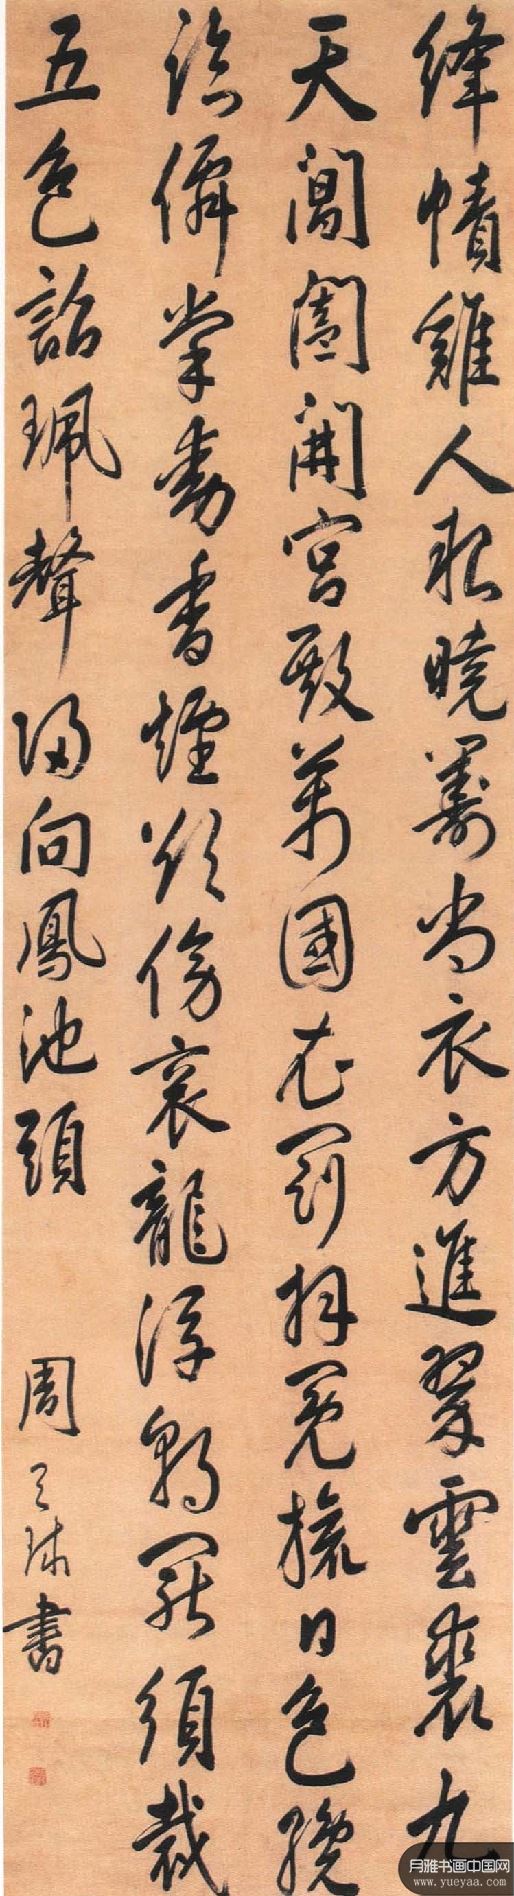 絳幘雞人報曉籌尚衣方進翠雲裘九
天閶闔開宮殿萬國衣冠拜冕旒日色纔
臨僊掌動香煙欲傍袞龍浮朝罷須裁
五色詔珮聲歸向鳳池頭
周天球書
月雅书画中国网
www.yueyaa.com